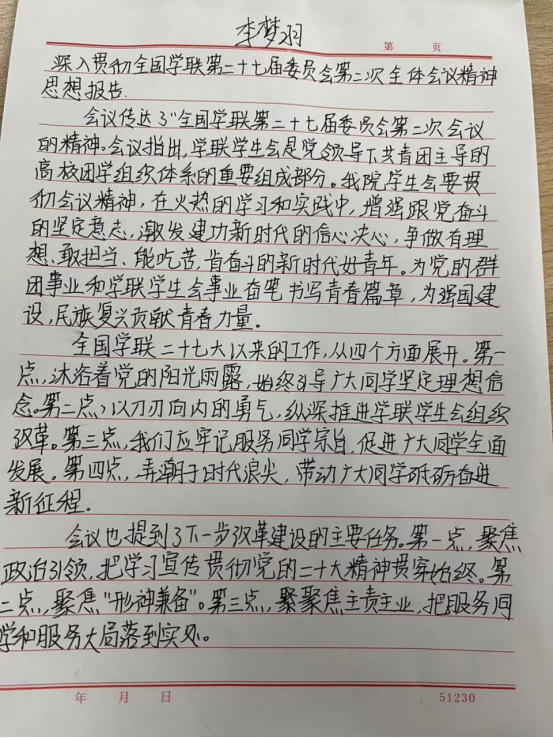 李梦羽
第 页
深入贯彻全国学联第二十七届委员会第二次全体会议精神
思想报告.
会议传达了"全国学联第二十七届委员会第二次会议
的精神.会议指出,学联学生会是党领导下共青团主导的
高校团学组织体系的重要组成部分。我院学生会要贯
彻会议精神,在火热的学习和实践中,增强跟党奋斗
的坚定意志,激发建功新时代的信心决心,争做有理
想、敢担当、能吃苦,肯奋斗的新时代好青年。为党的群
团事业和学联学生会事业奋笔书写青春篇章,为强国建
设,民族复兴贡献青春力量。
全国学联二十七大以来的工作,从四个方面展开。第一
点,沐浴着党的阳光雨露,始终引导广大同学坚定理想信
念。第二点,以刀刃向内的勇气,纵深推进学联学生会组织
改革。第三点,我们应牢记服务同学宗旨,促进广大同学全面
发展。第四点,弄潮于时代浪尖,带动广大同学砥砺奋进
新征程。
会议也提到了下一步改革建设的主要任务。第一点,聚焦
政治引领,把学习宣传贯彻党的二十大精神贯穿始终。第
二点,聚焦"形神兼备"。第三点,聚聚焦主责主业,把服务同
学和服务大局落到实处。
年 月 日
51230